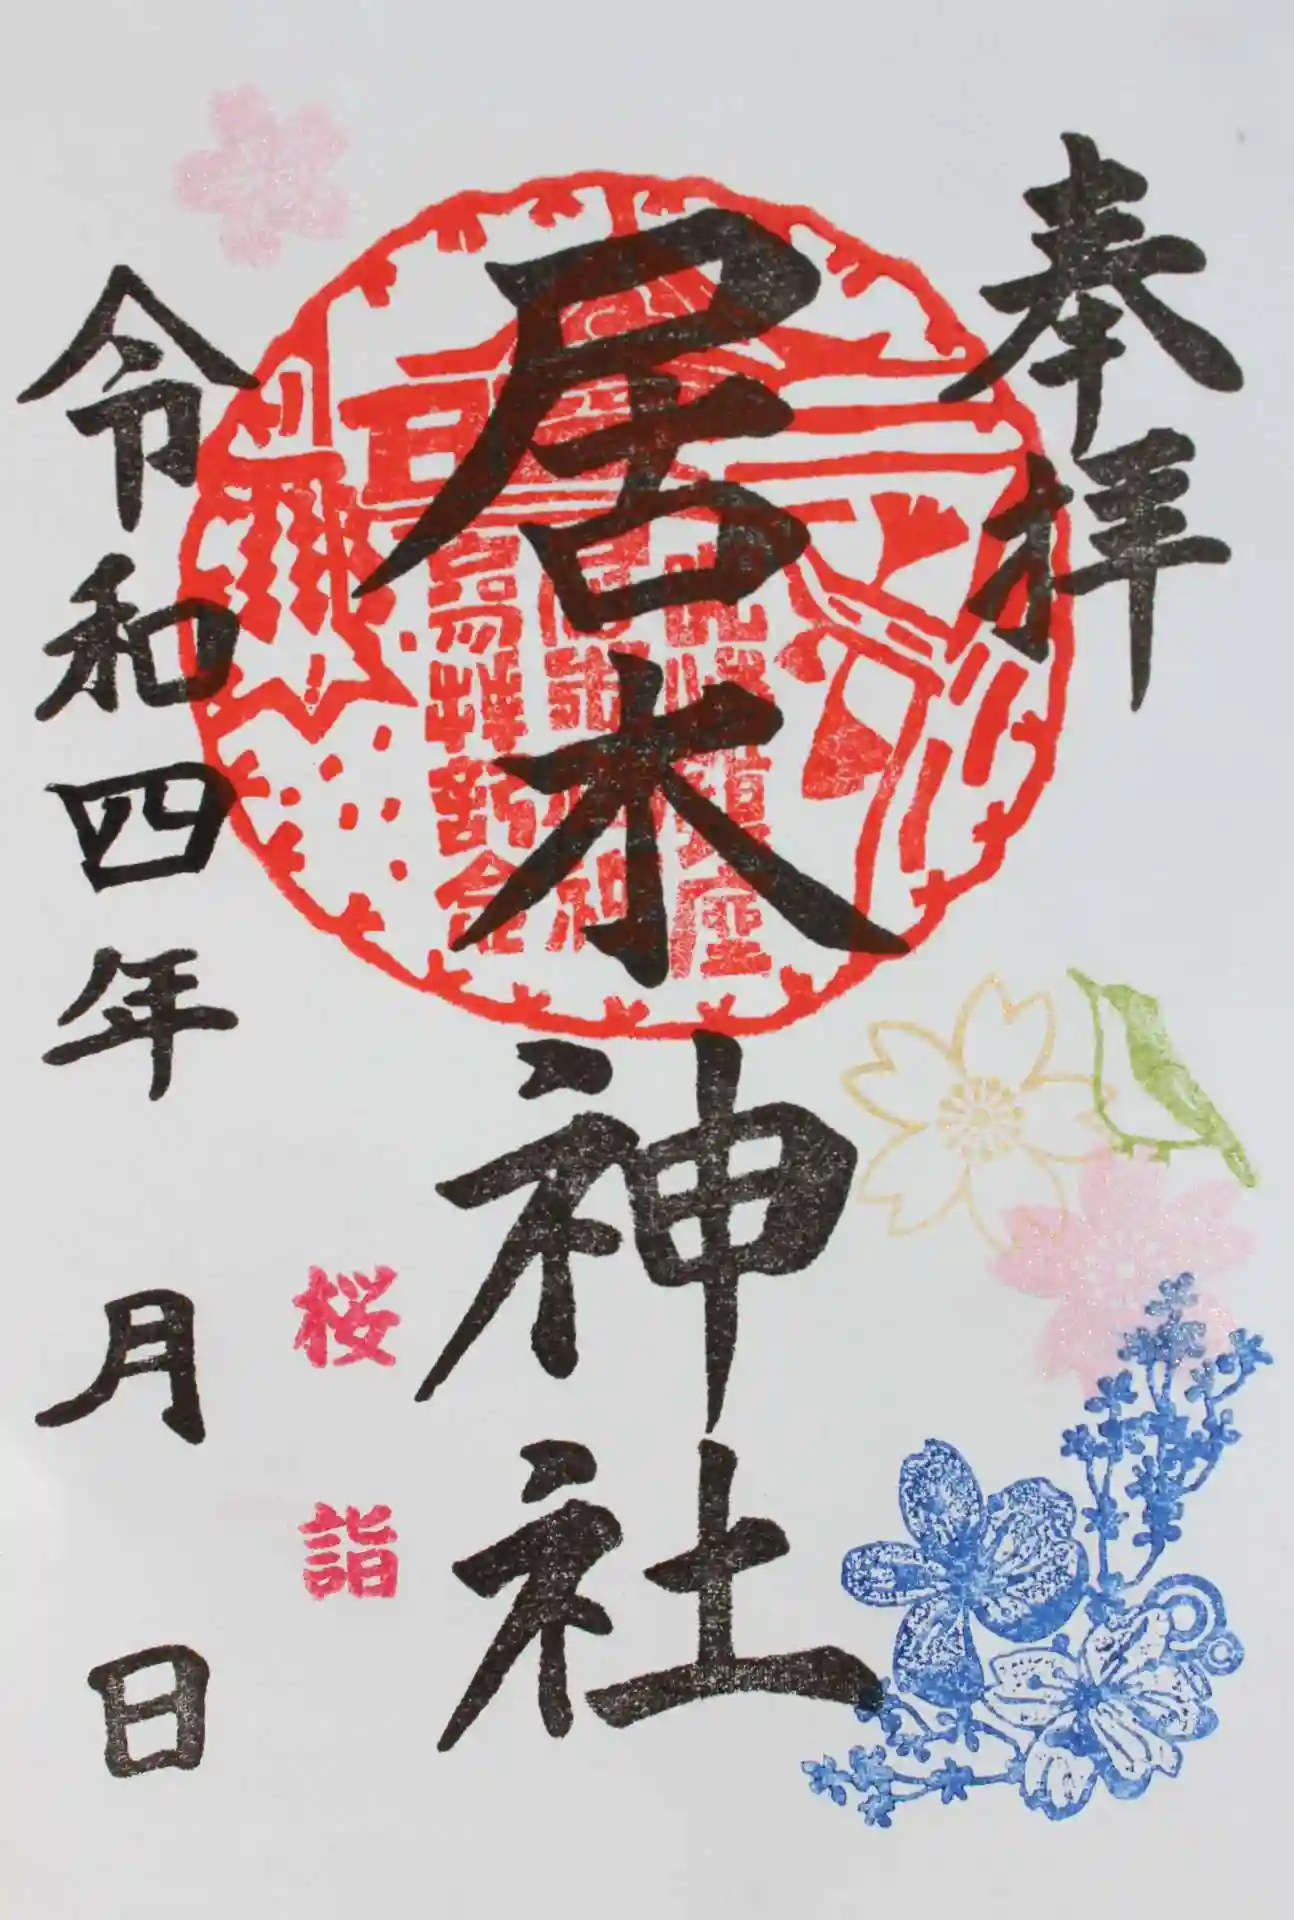 奉拝
居木神社
桜詣
令和四年 月 日